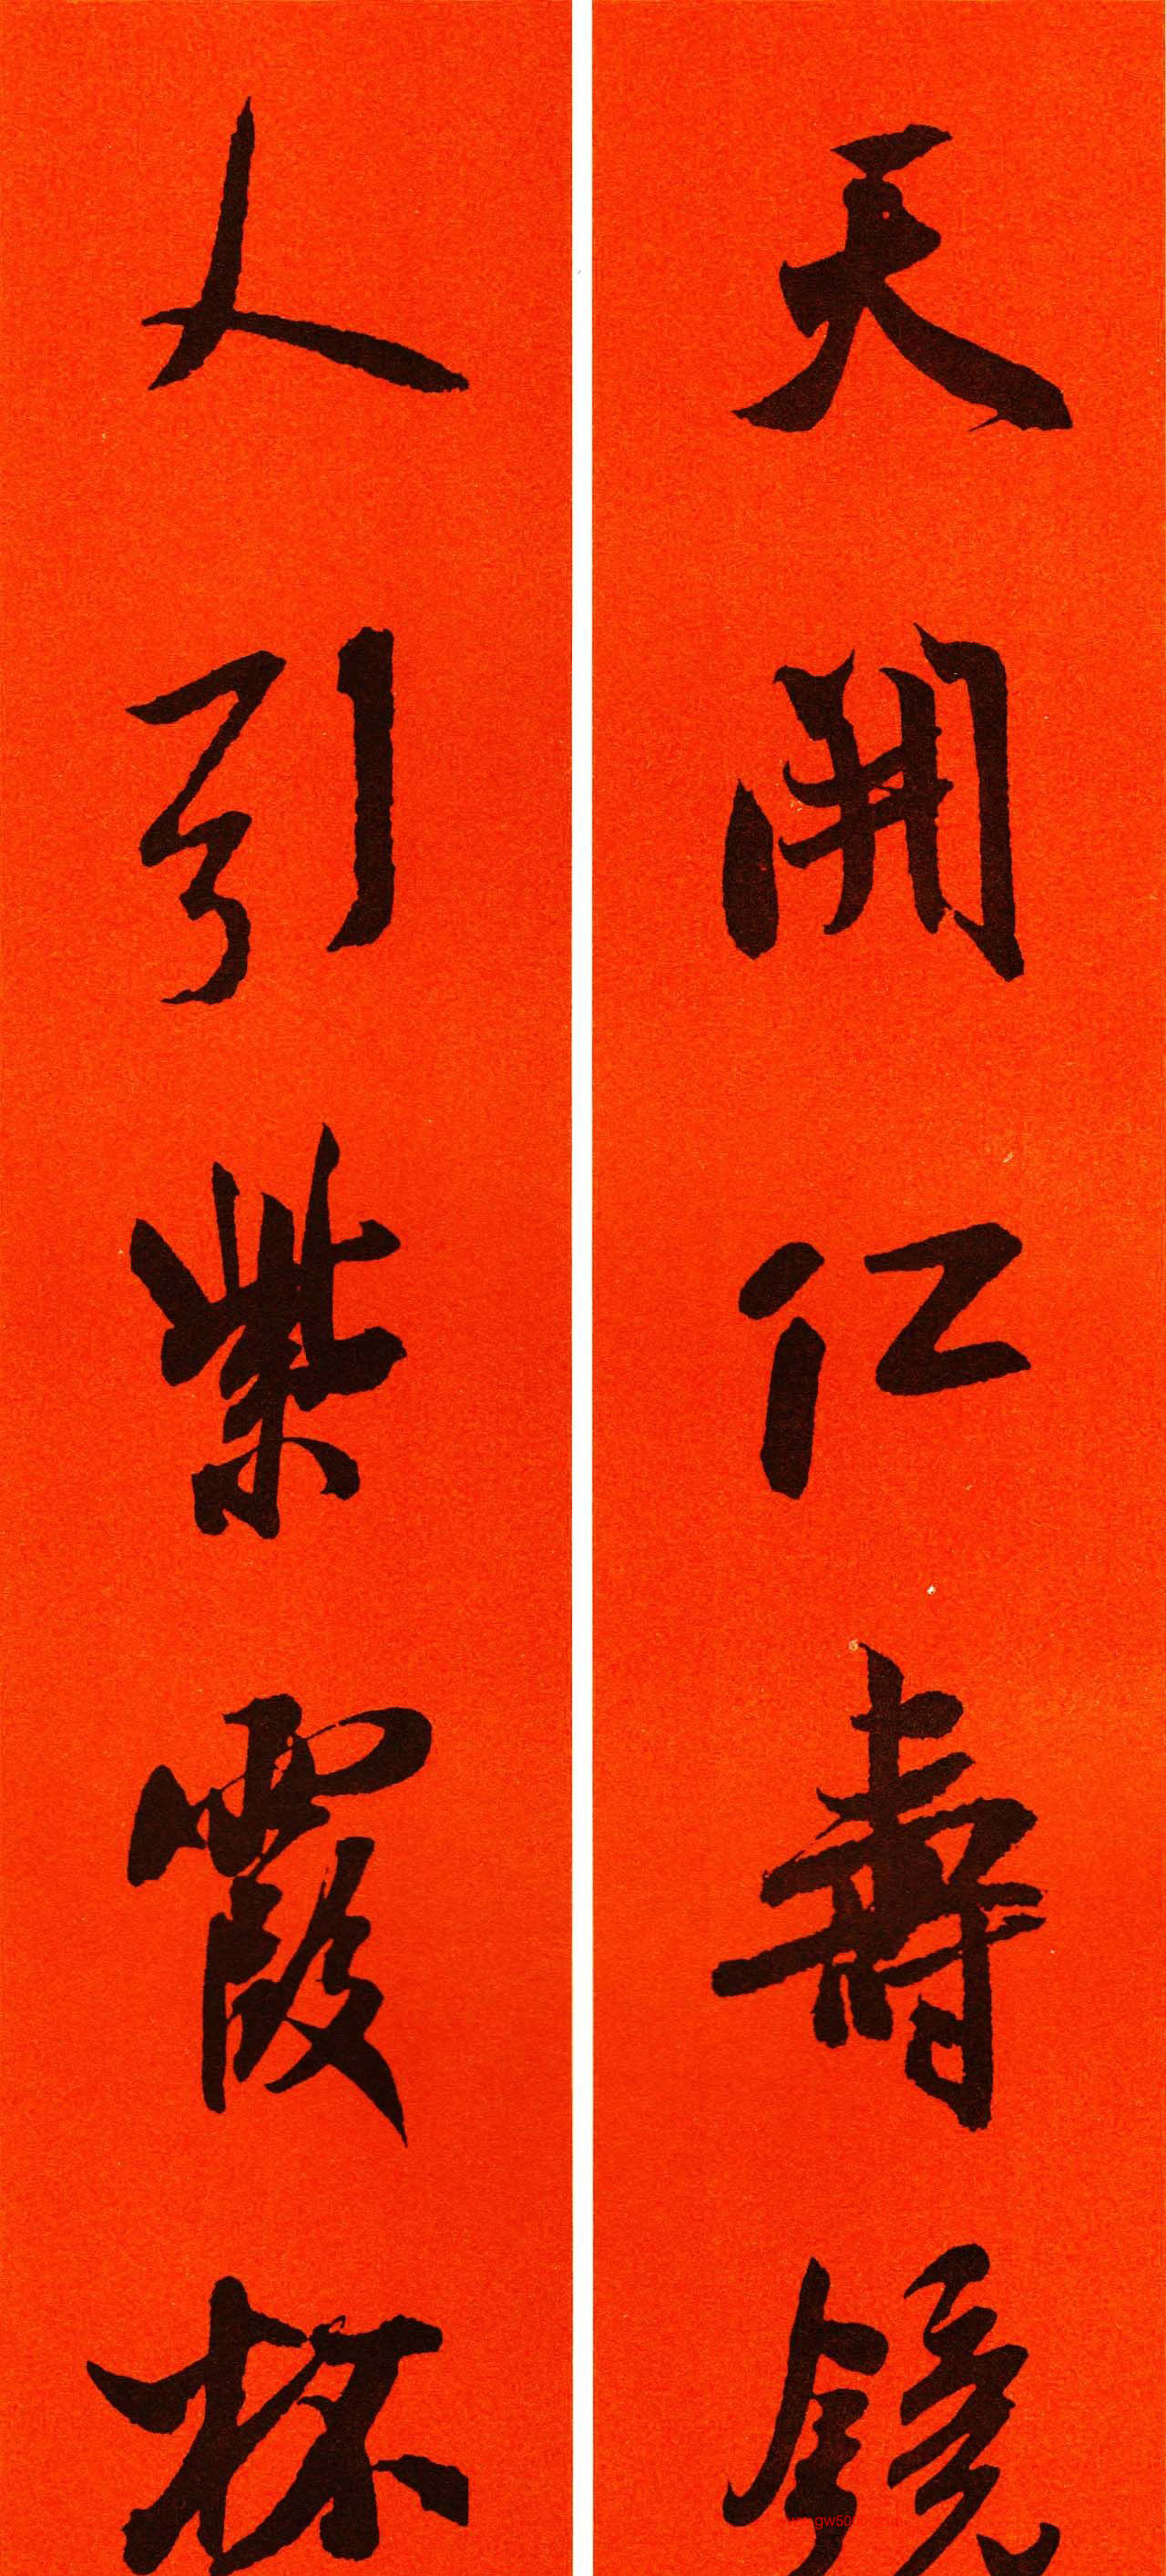 天開仁壽鏡
人引紫霞杯